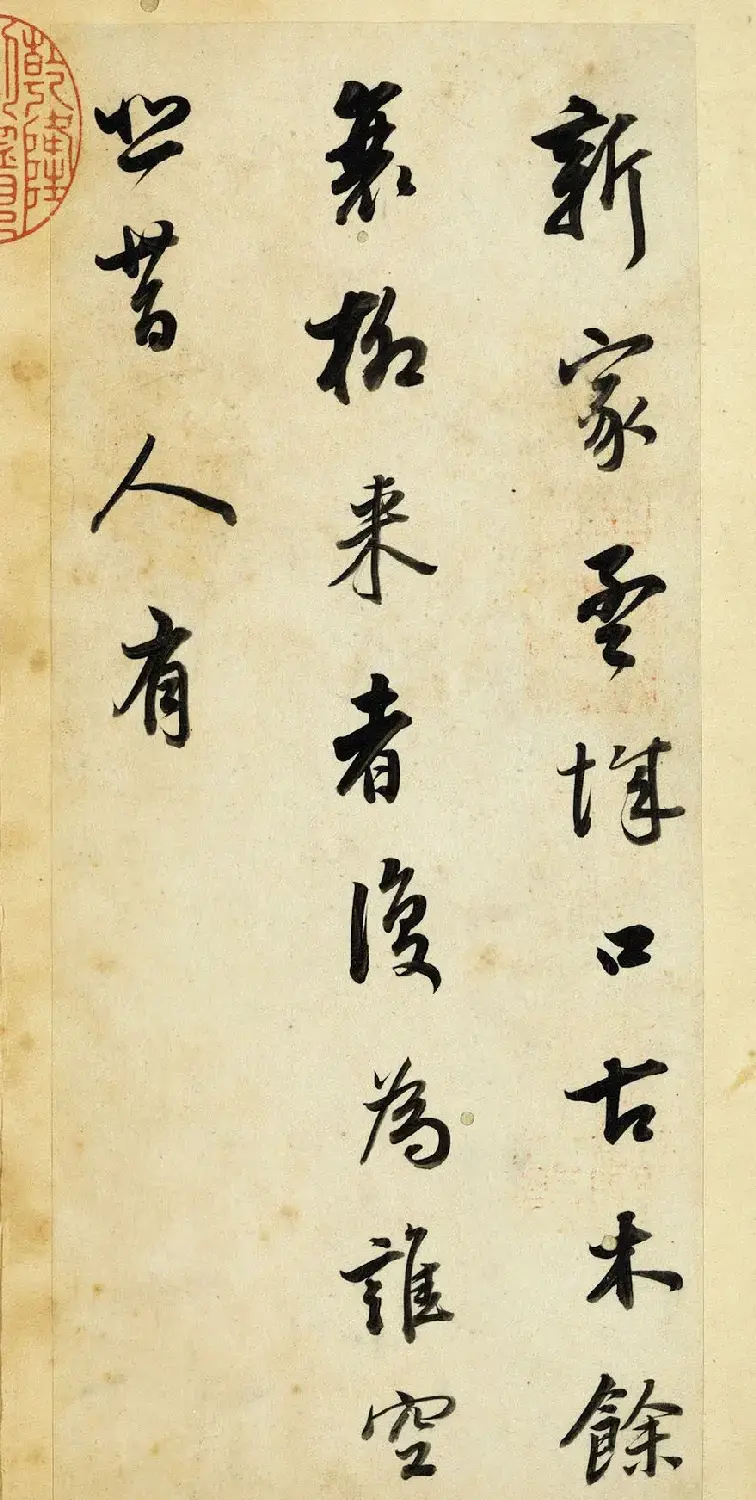 新家孟城口古木餘
衰柳来者復為誰空
悲昔人有
乾隆